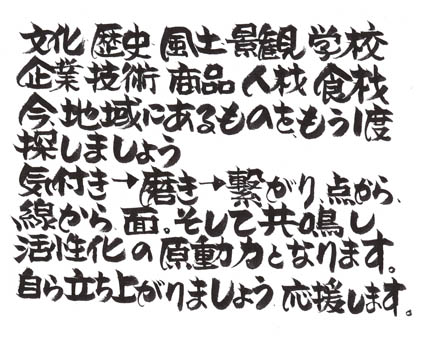 文化 歴史 風土 景観 学校
企業 技術 商品 人材 食材
今、地域にあるものを、もう1度
探しましょう
気付き→磨き→繋がり、点から、
線から、面。そして共鳴し
活性化の原動力となります。
自ら立ち上がりましょう 応援します。